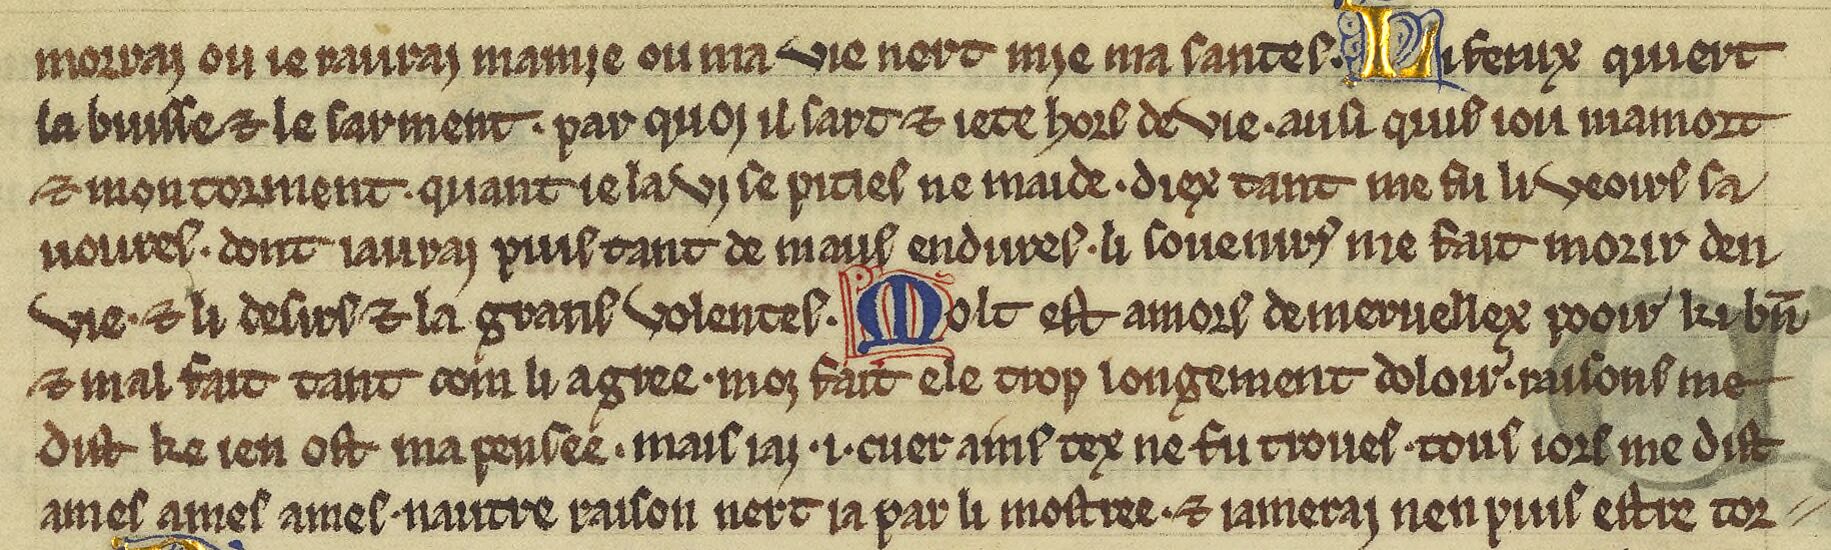 morrai ou ie raurai mamie ou ma vie nert mie ma santes. Li fenix quiert
la buisse & le sarment. par quoi il sart & iete hors de vie. ausi quis iou mamort
& mon torment. quant ie la vi se pities ne maide. diex tant me fu li veoirs sa
uoures. dont iaurai puis tant de maus endures. li souenirs me fait morir den
vie. & li desirs & la grans volentes. Molt est amors de meruellex pooir ki bn̄
& mal fait tant com li agree. moi fait ele trop longement doloir. raisons me
dist ke ien ost ma pensee. mais iai .i. cuer ains tex ne fu troues. tous iors me dist
ames ames ames. nautre raison nert ia par li mostree. & iamerai nen puis estre tor